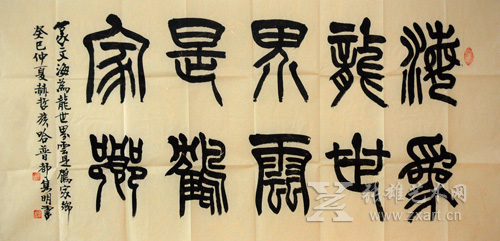 海為
龍世
界雲
是鶴
家鄉
篆文海為龍世界雲是鶴家鄉
癸巳仲夏赫哲族哈普都隽明書
张雄艺术网
www.zxart.cn